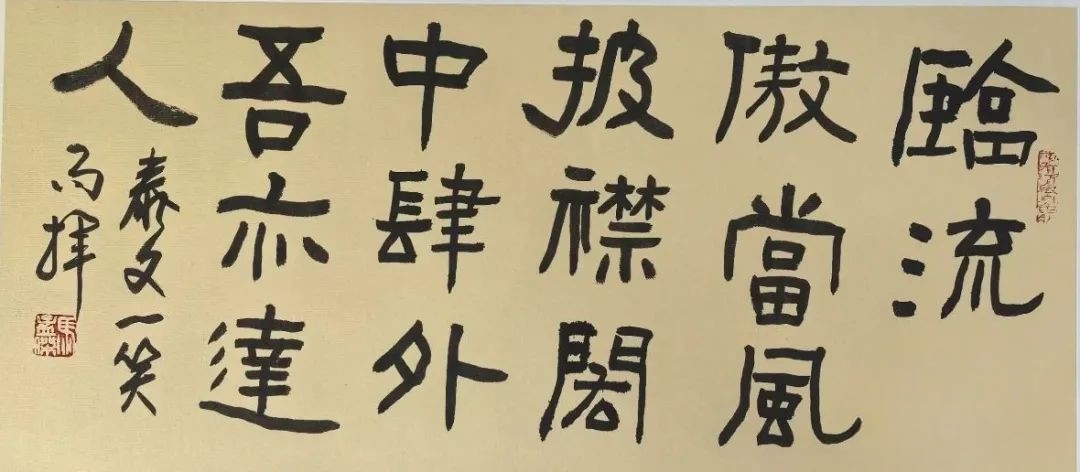 臨流
傲當風
披襟閎
中肆外
吾亦達
人
泰文一笑
而揮